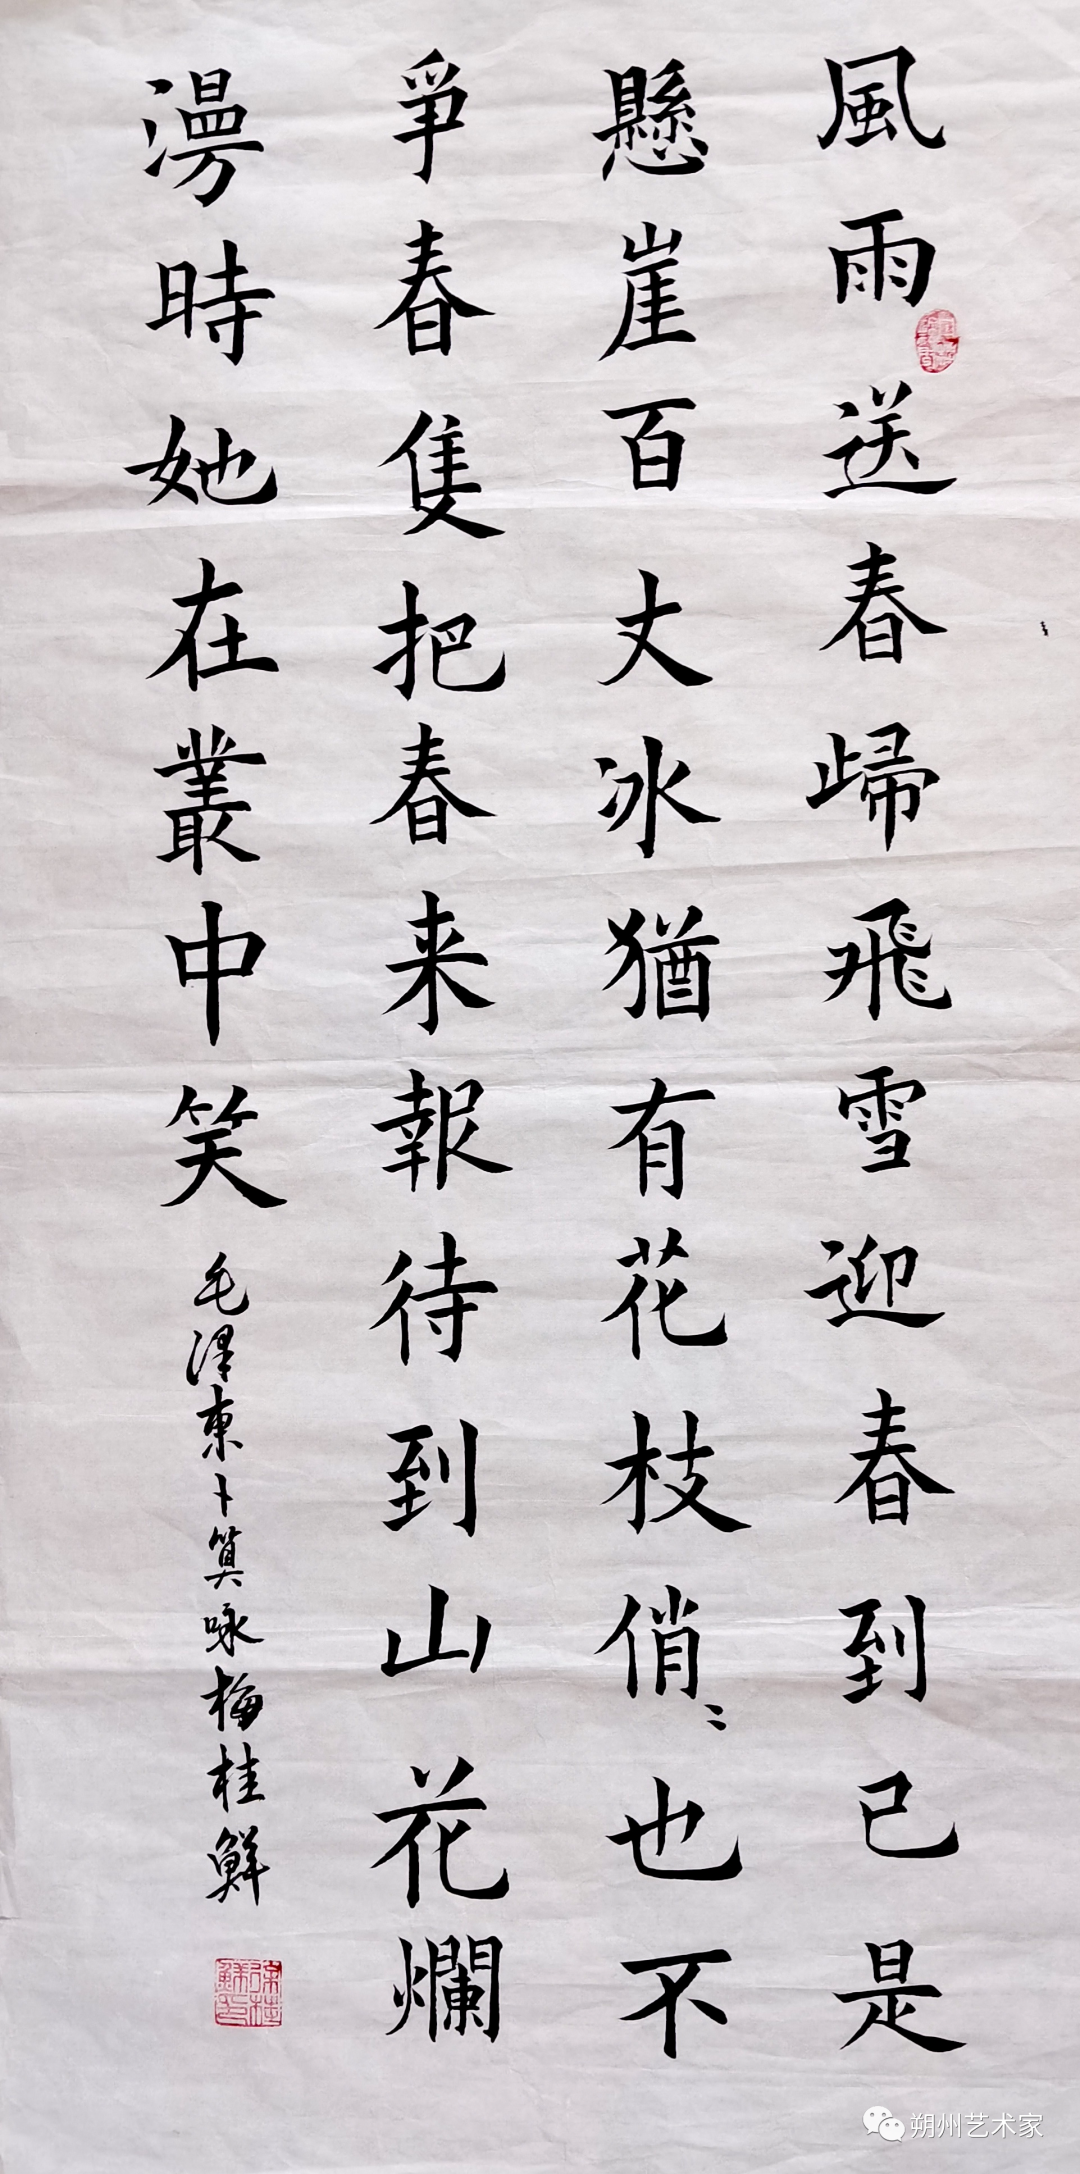 風雨送春歸飛雪迎春到已是
懸崖百丈冰猶有花枝俏〻也不
爭春隻把春来報待到山花爛
漫時她在叢中笑
毛澤東卜算咏梅桂鮮
朔州艺术家